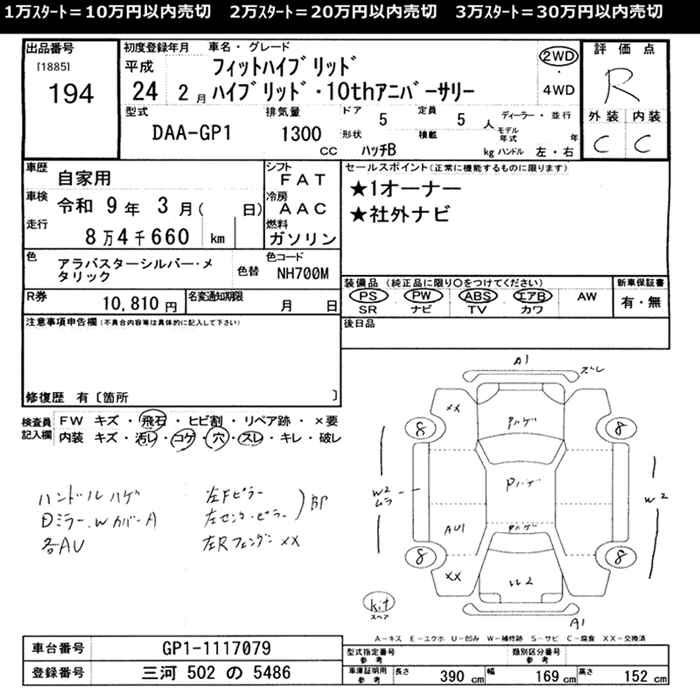 1万ｽﾀｰﾄ＝10万円以内売切　2万ｽﾀｰﾄ＝20万円以内売切　3万ｽﾀｰﾄ＝30万円以内売切
出品番号
[1885]
194
初度登録年月 車名・グレード
平成 フィットハイブリッド
24 2月 ハイブリッド・10thアニバーサリー
2WD
・
4WD
評価点
R
型式 排気量 ドア 定員 ディーラー・並行
DAA-GP1 1300 cc 5 5 人 モデル年式 年
形状 ハッチB 積載 kg ハンドル 左・右
外装 内装
C C
車歴 自家用
シフト FAT
車検 令和 9年 3月( 日)
冷房 AAC
走行 8万4千660 km
燃料 ガソリン
セールスポイント(正常に機能するものに限ります)
★1オーナー
★社外ナビ
色 アラバスターシルバー・メタリック
色替
色コード NH700M
装備品 (純正品に限り○をつけてください) 新車保証書
PS PW ABS エアB AW 有・無
SR ナビ TV カワ
R券 10,810円 名変通知期限 月 日
後日品
注意事項申告欄(不具合内容等は具体的に記入して下さい)
修復歴 有〔箇所 〕
検査員記入欄
FW キズ・飛石・ヒビ割・リペア跡・×要
内装 キズ・汚レ・コゲ・穴・スレ・キレ・破レ
ハンドルハゲ
Dミラー、Wカバー A
各AU
左Fピラー
左センターピラー
BP
左Rフェンダー XX
A1
ズレ
XX
Pハゲ
8
8
W2
ムラ
Pハゲ
W2
AU1
Pハゲ
8
8
XX
A1
kit
スペア
A－キズ E－エクボ U－凹み W－補修跡 S－サビ C－腐食 XX－交換済
車台番号 GP1-1117079
登録番号 三河 502 の 5486
型式指定番号 参考 類別区分番号 参考
車庫証明用 参考 長さ 390 cm 幅 169 cm 高さ 152 cm